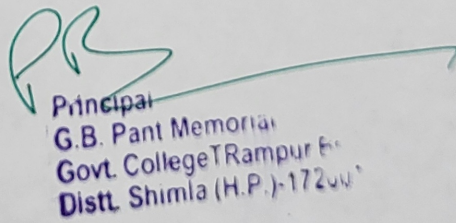 Principal
G.B. Pant Memorial
Govt. College Rampur
Distt. Shimla (H.P.)-172